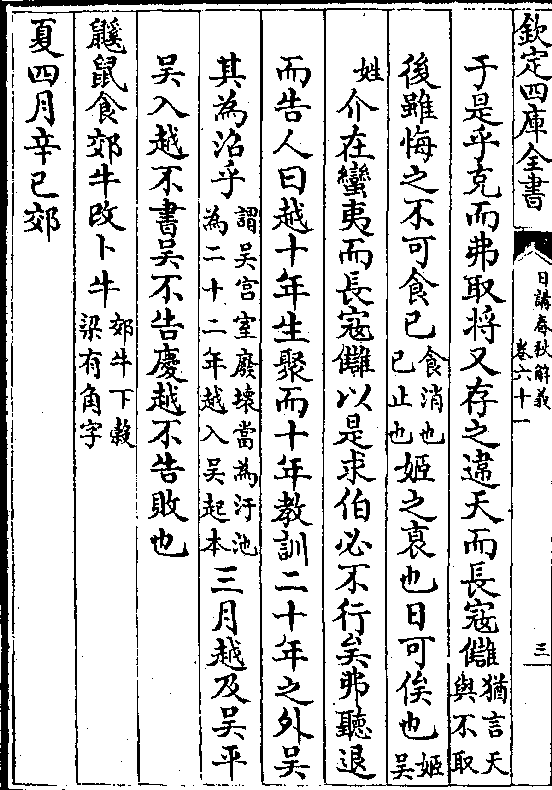 欽定四庫全書
日講春秋解義
卷六十一
三
于是乎克而弗取將又存之違天而長寇讎猶言天
與不取
後雖悔之不可食已食消也
已止也姬之衰也日可俟也姬
吳
姓介在蠻夷而長寇讎以是求伯必不行矣弗聽退
而告人曰越十年生聚而十年教訓二十年之外吳
其為沼乎謂吳宮室廢壞當為汙池
為二十二年越入吳起本三月越及吳平
吳入越不書吳不告慶越不告敗也
鼷鼠食郊牛改卜牛郊牛下穀
梁有角字
夏四月辛巳郊